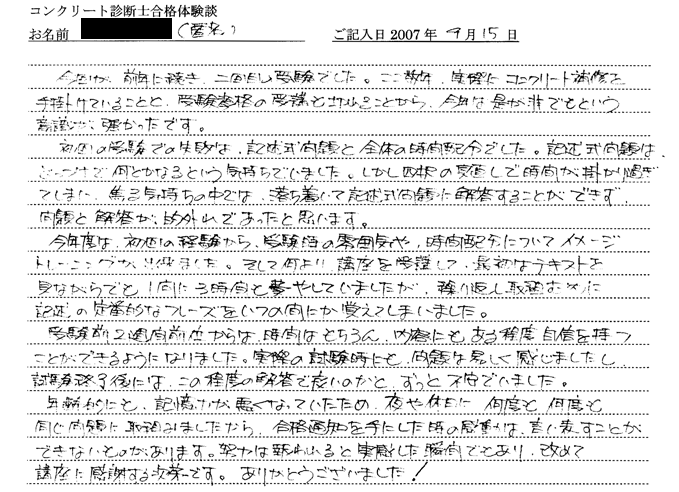 コンクリート診断士合格体験談
お名前 (匿名) ご記入日 2007年 9月 15日
今回が、前年に続き、二回目の受験でした。ここ数年、実際にコンクリート補修を
手掛けていることと、受験資格の受講ことから、今年は是が非でもという
意識が、強かったです。
初回の受験での失敗は、記述式問題と全体の時間配分でした。記述式問題は、
何とかなるという気持ちでいました。しかし四択の見直しで時間が掛かり過ぎ
てしまい、焦る気持ちの中では、落ち着いて記述式問題に解答することができず、
問題と解答が、的外れであったと思います。
今年度は、初回の経験から、受験時の雰囲気や、時間配分についてイメージ
トレーニングが出来ました。そして何より、講座を受講して、最初はテキストを
見ながらでも1問に3時間と費やしていましたが、繰り返し取組むうちに
記述の定番的なフレーズをいつの間にか覚えてしまいました。
受験前2週間前位からは、時間はもちろん、内容にもある程度自信を持つ
ことができるようになりました。実際の試験時にも、問題は易しく感じましたし、
試験終了後には、この程度の解答で良いのかと、ずっと不安でいました。
年齢的にも、記憶力が悪くなっていたため、夜や休日に何度も何度も
同じ問題に取組みましたから、合格通知を手にした時の感動は、言い表すことが
できないものがあります。努力は報われると実感した瞬間でもあり、改めて
講座に感謝する次第です。ありがとうございました!